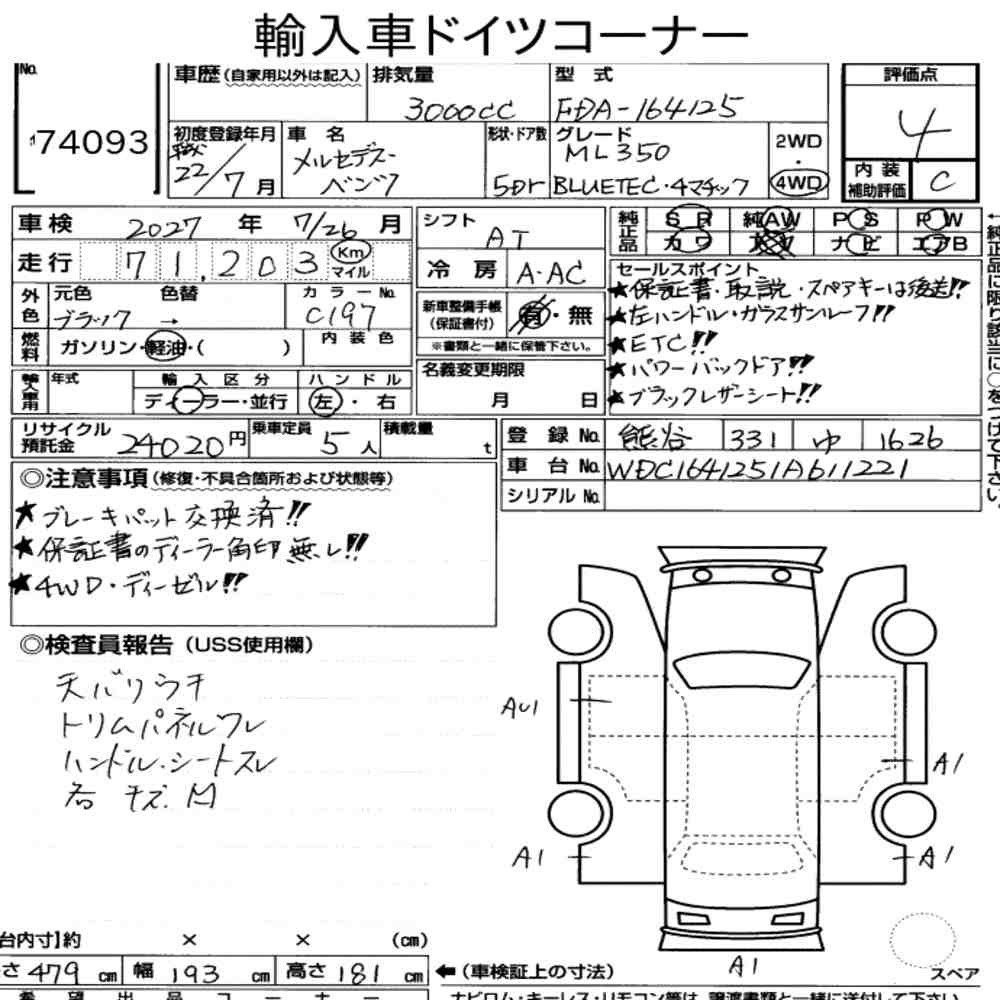 輸入車ドイツコーナー
No.
74093
車歴 (自家用以外は記入)
排気量
3000cc
型 式
FDA-164125
評価点
4
内 装
補助評価
C
初度登録年月
22/7 月
車 名
メルセデス-
ベンツ
形状・ドア数
5Dr
グレード
ML350
BLUETEC・4マチック
2WD
・
4WD
車検 2027 年 7/26 月
走行 71,203 Km
マイル
シフト
AT
冷 房
A・AC
純正品
S R 純AW P S P W
カワ ナビ エアB
外色
元色 色替
ブラック →
カラーNo.
C197
燃料
ガソリン・軽油・( )
内 装 色
新車整備手帳
(保証書付)
有・無
※書類と一緒に保管下さい。
セールスポイント
★保証書・取説・スペアキーは後送!!
★左ハンドル・ガラスサンルーフ!!
★ETC!!
★パワーバックドア!!
★ブラックレザーシート!!
輸入車用
年式
輸 入 区 分
ディーラー・並行
ハ ン ド ル
左 ・ 右
名義変更期限
月 日
リサイクル
預託金
24020円
乗車定員
5人
積載量
t
登 録 No. 熊谷 331 ゆ 1626
車 台 No. WDC1641251A611221
シリアル No.
◎注意事項 (修復・不具合箇所および状態等)
★ブレーキパット交換済!!
★保証書のディーラー角印無し!!
★4WD・ディーゼル!!
◎検査員報告 (USS使用欄)
天バリウチ
トリムパネルワレ
ハンドル・シートスレ
右 キズ M
AU1
A1
A1
A1
A1
台内寸】約 × × (cm)
さ 479 cm 幅 193 cm 高さ 181 cm
←(車検証上の寸法)
スペア
希 望 出 品 コ ー ナ ー
ナビロム・キーレス・リモコン等は、譲渡書類と一緒に送付して下さい。
←純正品に限り該当に○をつけて下さい。